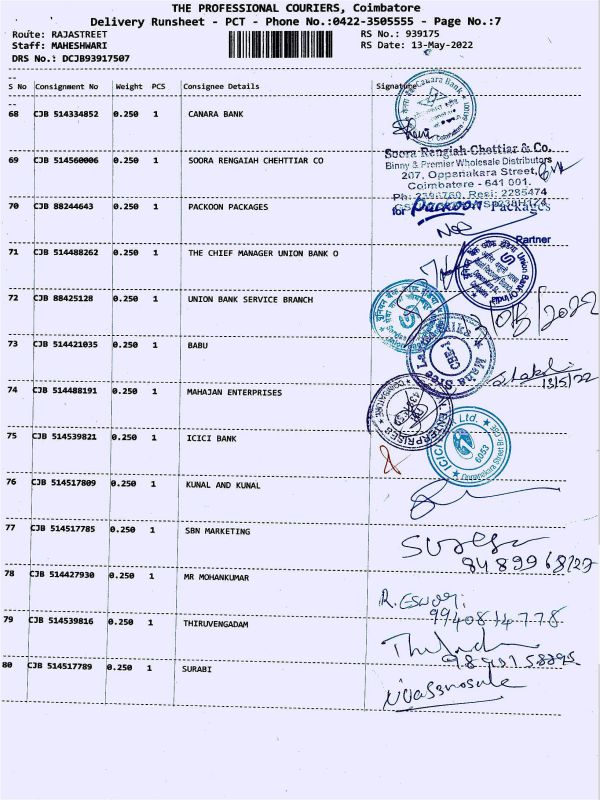 THE PROFESSIONAL COURIERS, Coimbatore
Delivery Runsheet - PCT - Phone No.:0422-3505555 - Page No.:7
Route: RAJASTREET RS No.: 939175
Staff: MAHESHWARI RS Date: 13-May-2022
DRS No.: DCJB93917507
S No Consignment No Weight PCS Consignee Details Signature
68 CJB 514334852 0.250 1 CANARA BANK
Canara Bank
69 CJB 514560006 0.250 1 SOORA RENGAIAH CHEHTTIAR CO
Soora Rengiah Chettiar & Co.
Binny & Premier Wholesale Distributors
207, Oppanakara Street,
Coimbatore - 641 001.
70 CJB 88244643 0.250 1 PACKOON PACKAGES
for Packoon Packages
Partner
71 CJB 514488262 0.250 1 THE CHIEF MANAGER UNION BANK O
Union Bank Of India
72 CJB 88425128 0.250 1 UNION BANK SERVICE BRANCH
73 CJB 514421035 0.250 1 BABU
13/5/22
74 CJB 514488191 0.250 1 MAHAJAN ENTERPRISES
ENTERPRISES
75 CJB 514539821 0.250 1 ICICI BANK
ICICI Ltd.
6053
76 CJB 514517809 0.250 1 KUNAL AND KUNAL
77 CJB 514517785 0.250 1 SBN MARKETING
78 CJB 514427930 0.250 1 MR MOHANKUMAR
79 CJB 514539816 0.250 1 THIRUVENGADAM
80 CJB 514517789 0.250 1 SURABI